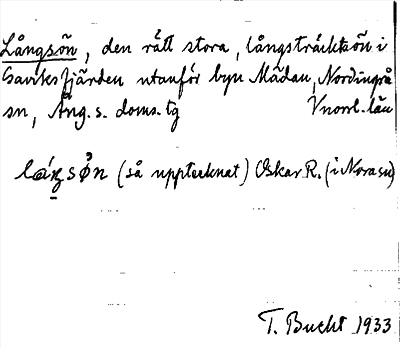 Långsön, den rätt stora, långsträckta ön i
Gaviksfjärden utanför byn Mädan, Nordingrå
sn, Ång. s. doms. tg Vnorrl. län
(så upptecknat) Oskar R. (i Nora sn)
T. Bucht 1933